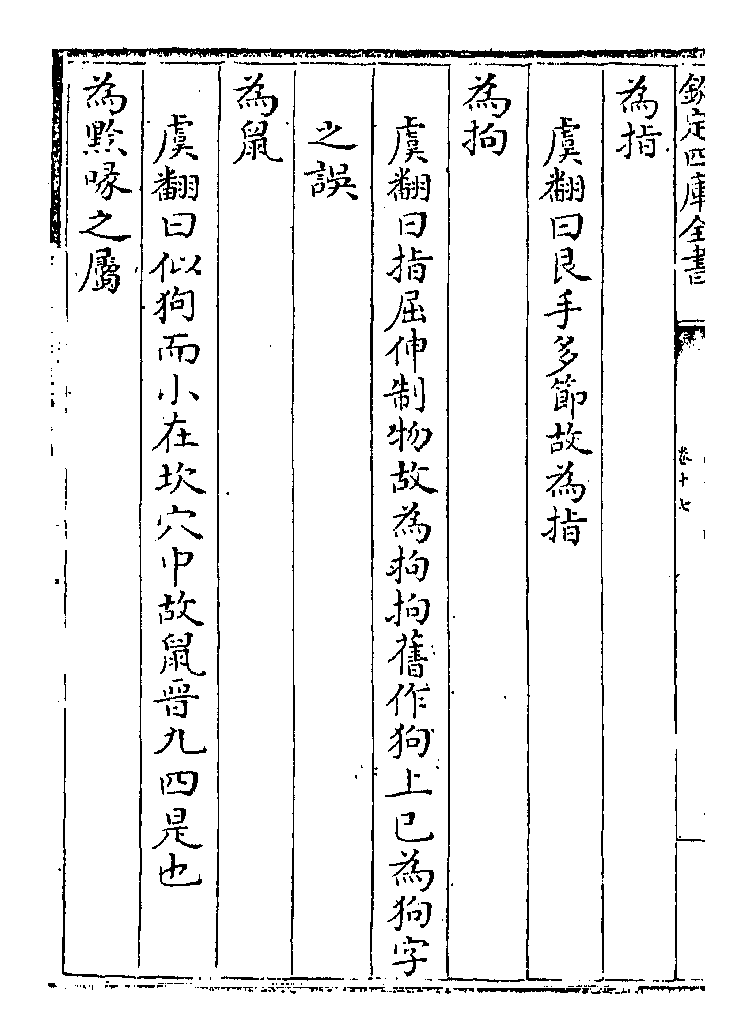 欽定四庫全書
卷十七
為指
虞翻曰艮手多節故為指
為拘
虞翻曰指屈伸制物故為拘拘舊作狗上已為狗字
之誤
為鼠
虞翻曰似狗而小在坎穴中故鼠晉九四是也
為黔喙之屬